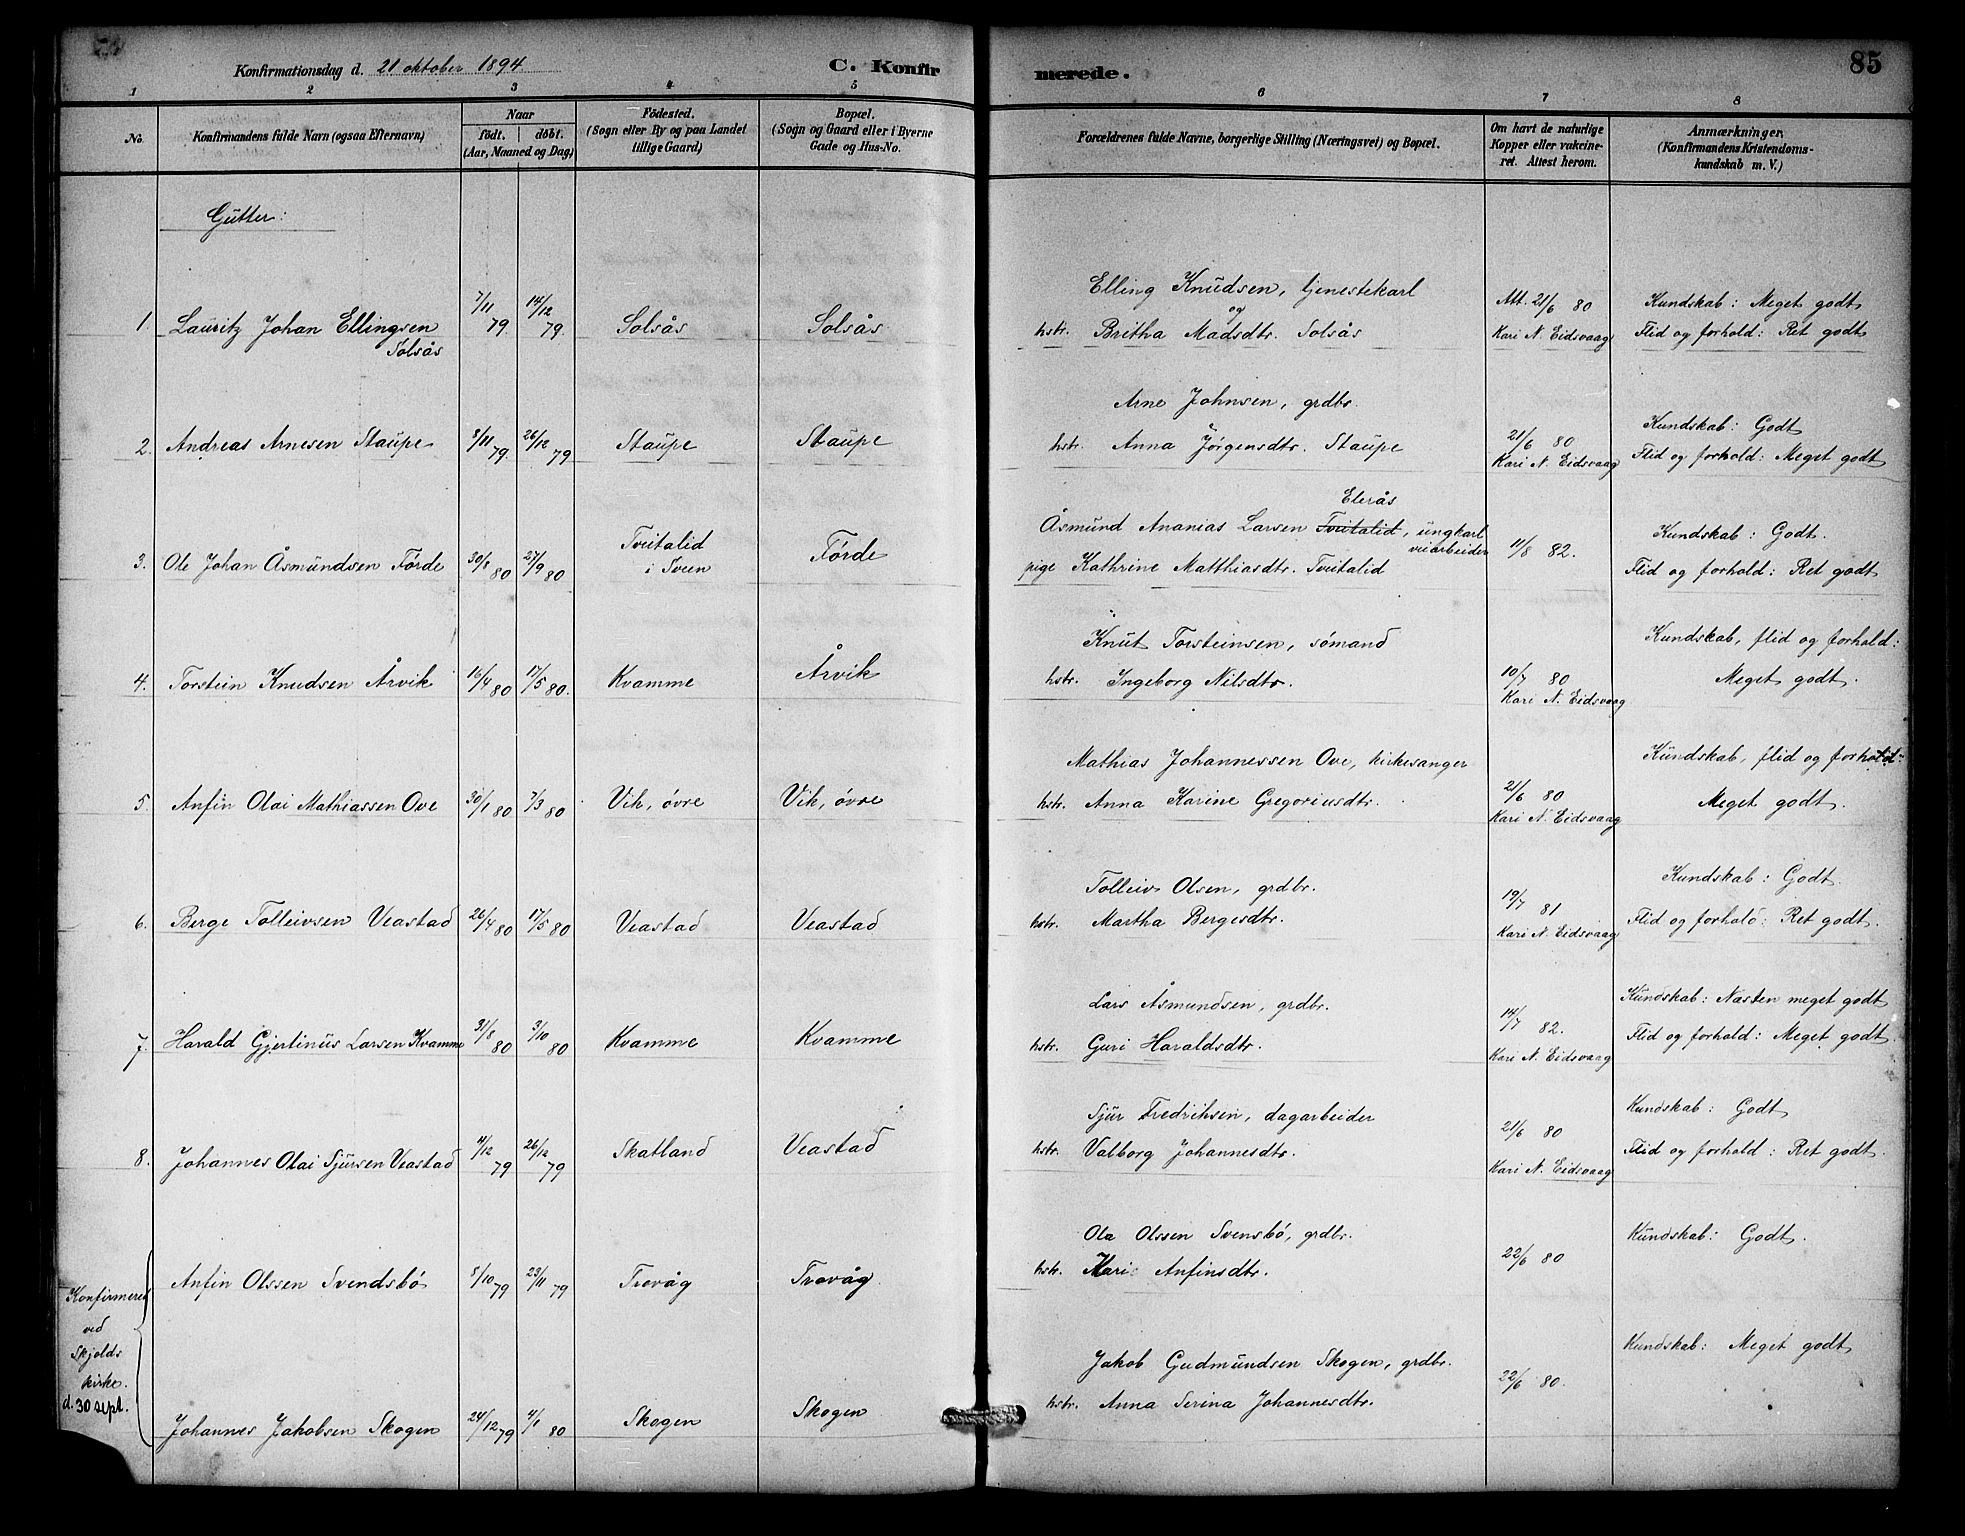 Konfirmationsdag d. 21 oktober 1894 C. Konfirmerede. 85
1 2 3 4 5 6 7 8
No. Konfirmandens fulde Navn (ogsaa Efternavn) Naar født. døbt. (Aar, Maaned og Dag) Fødested. (Sogn eller By og paa Landet tillige Gaard) Bopæl. (Sogn og Gaard eller i Byerne Gade og Hus-No. Forældrenes fulde Navne, borgerlige Stilling (Næringsvei) og Bopæl. Om havt de naturlige Kopper eller vakcineret. Attest herom. Anmærkninger, (Konfirmandens Kristendomskundskab m. V.)
Gutter:
Elling Knudsen, tjenestekarl
og
1. Lauritz Johan Ellingsen 7/11 79. 14/12 79. Solsås Solsås hstr. Britha Madsdtr. Solsås Att. 21/6 80 Kundskab: Meget godt
Solsås Kari N. Eidsvaag Flid og forhold: Ret godt
Arne Johnsen, grdbr.
2. Andreas Arnesen Staupe 8/11 79. 26/12 79 Staupe Staupe hstr. Anna Jørgensdtr. Staupe 21/6 80 Kundskab: Godt
Kari N. Eidsvaag Flid og forhold: Meget godt
Elerås
Åsmund Ananias Larsen Tveitalid, ungkarl
veiarbeider
3. Ole Johan Åsmundsen Førde 30/8 80 27/9 80 Tveitalid i Sveen Førde pige Kathrine Matthiasdtr. Tveitalid 11/8 82. Kundskab: Godt.
Flid og forhold: Ret godt
Knut Torsteinsen, sømand
4. Torstein Knudsen Årvik 16/4 80 17/5 80. Kvamme Årvik hstr. Ingeborg Nilsdtr. 10/7 80 Kundskab, flid og forhold:
Kari N. Eidsvaag Meget godt.
Mathias Johannessen Ove, kirkesanger
5. Anfin Olai Mathiassen Ove 30/1 80 7/3 80 Vik, øvre Vik, øvre hstr. Anna Karine Gregoriusdtr. 21/6 80 Kundskab, flid og forhold:
Kari N. Eidsvaag Meget godt.
Tolleiv Olsen, grdbr.
6. Berge Tolleivsen Veastad 26/4 80 17/5 80 Veastad Veastad hstr. Martha Bergesdtr. 19/7 81 Kundskab: Godt.
Kari N. Eidsvaag Flid og forhold: Ret godt.
Lars Åsmundsen, grdbr.
7. Harald Gjertinus Larsen Kvamme 31/8 80 3/10 80 Kvamme Kvamme hstr. Guri Haraldsdtr. 14/7 82. Kundskab: Næsten meget godt
Kari N. Eidsvaag Flid og forhold: Meget godt.
Sjur Fredriksen, dagarbeider
8. Johannes Olai Sjursen Veastad 4/12 79 26/12 79 Skatland Veastad hstr. Valborg Johannesdtr. 21/6 80 Kundskab: Godt
Kari N. Eidsvaag Flid og forhold: Ret godt.
Ole Olssen Svensbø, grdbr.
Anfin Olssen Svendsbø 5/10 79 23/11 79 Trovåg Trovåg hstr. Kari Anfinsdtr. 22/6 80 Kundskab: Godt.
Konfirmeret
ved
Skjolds
kirke.
d. 30 sept.
Jakob Gudmundsen Skogen, grdbr.
Johannes Jakobsen Skogen 24/12 79 4/1 80 Skogen Skogen hstr. Anna Serina Johannesdtr. 22/6 80. Kundskab: Meget godt